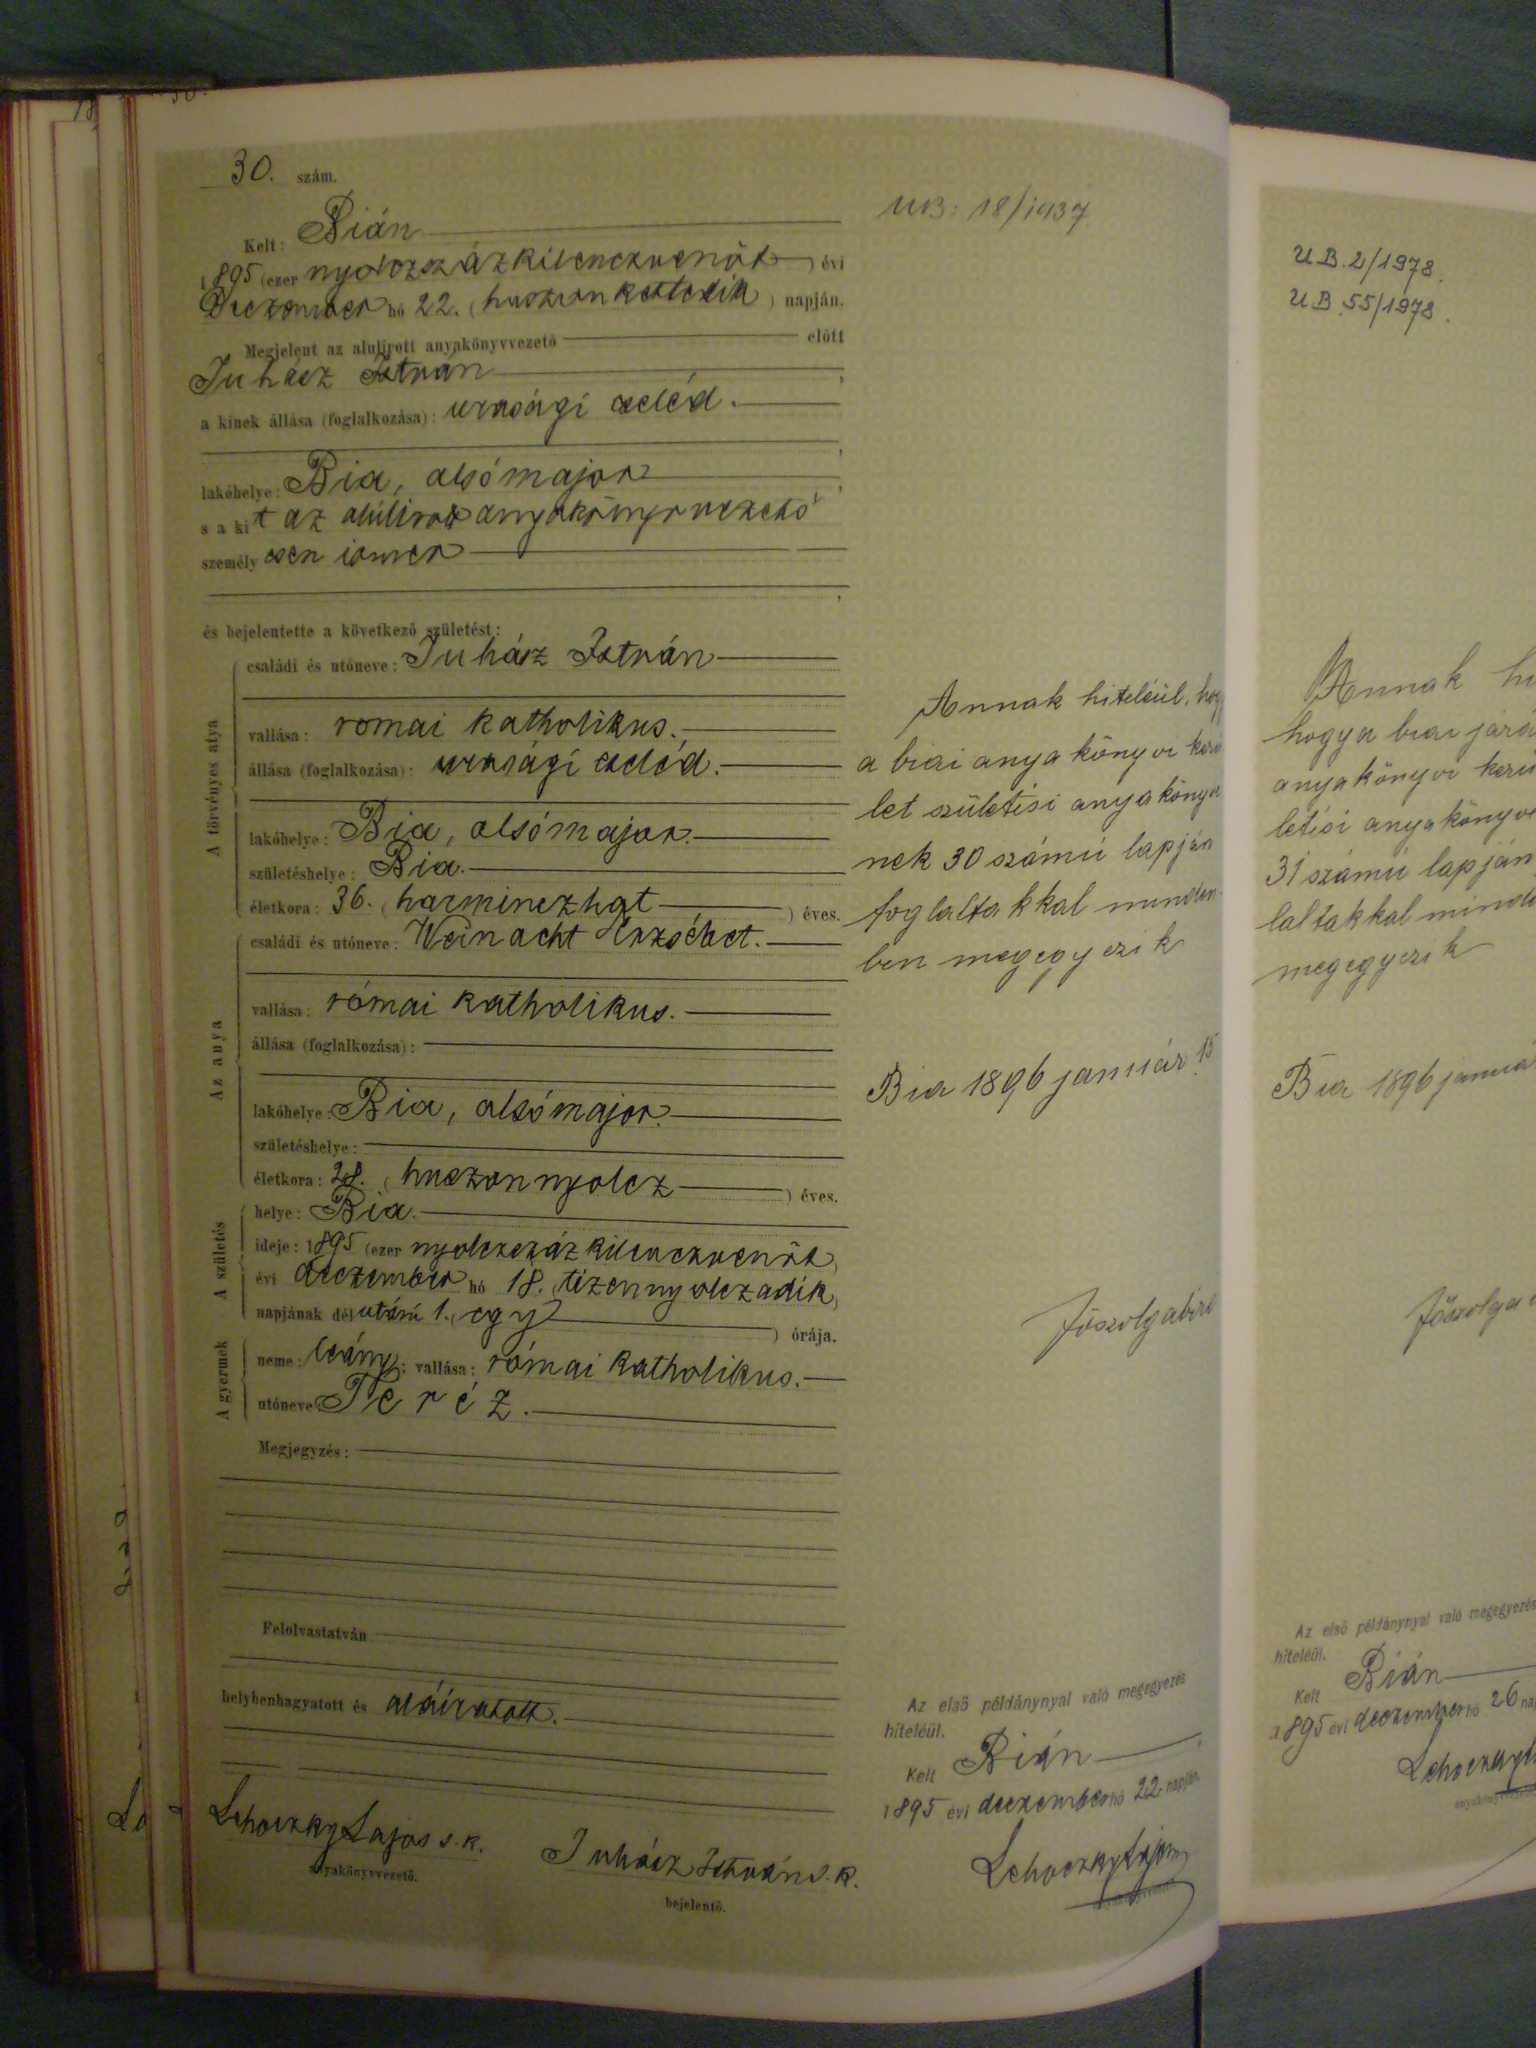 30. szám.
Kelt: Bián
1895 (ezer nyolczszázkilenczvenöt) évi
Deczember hó 22. (huszonkettedik) napján.
Megjelent az alulirott anyakönyvvezető előtt
Juhász István,
a kinek állása (foglalkozása): urasági cseléd.
lakóhelye: Bia, alsómajor,
s a kit az alúlirott anyakönyvvezető
személyesen ismer
és bejelentette a következő születést:
A törvényes atya
családi és utóneve: Juhász István
vallása: romai katholikus.
állása (foglalkozása): urasági cseléd.
lakóhelye: Bia, alsómajor.
születéshelye: Bia.
életkora: 36. (harminczhat) éves.
Az anya
családi és utóneve: Weinacht Erzsébet.
vallása: római katholikus.
állása (foglalkozása):
lakóhelye: Bia, alsómajor.
születéshelye:
életkora: 28. (huszonnyolcz) éves.
A születés
helye: Bia.
ideje: 1895 (ezer nyolczszázkilenczvenöt)
évi deczember hó 18. (tizennyolczadik)
napjának délutáni 1. (egy) órája.
A gyermek
neme: leány; vallása: római katholikus.
utóneve: Teréz.
Megjegyzés:
Felolvastatván
helybenhagyatott és aláiratott.
Lehoczky Lajos s.k.
anyakönyvvezető.
Juhász István s.k.
bejelentő.
UB: 18/1937
Annak hiteléül, hogy
a biai anyakönyvi kerü
let születési anyakönyvé
nek 30 számú lapján
foglaltakkal minden
ben megegyezik
Bia 1896 január 15
főszolgabiró
Az első példánynyal való megegyezés
hiteléül.
Kelt Bián
1895 évi deczember hó 22 napján.
Lehoczky Lajos
anyakönyvvezető
U B. 2/1978.
U B. 55/1978.
Annak hi
hogy a biai járá
anyakönyvi kerü
letési anyakönyvé
31 számú lapján
laltakkal minde
megegyezik
Bia 1896 januá
főszolga
Az első példánynyal való megegyezés
hiteléül.
Kelt Bián
1895 évi deczember hó 26 na